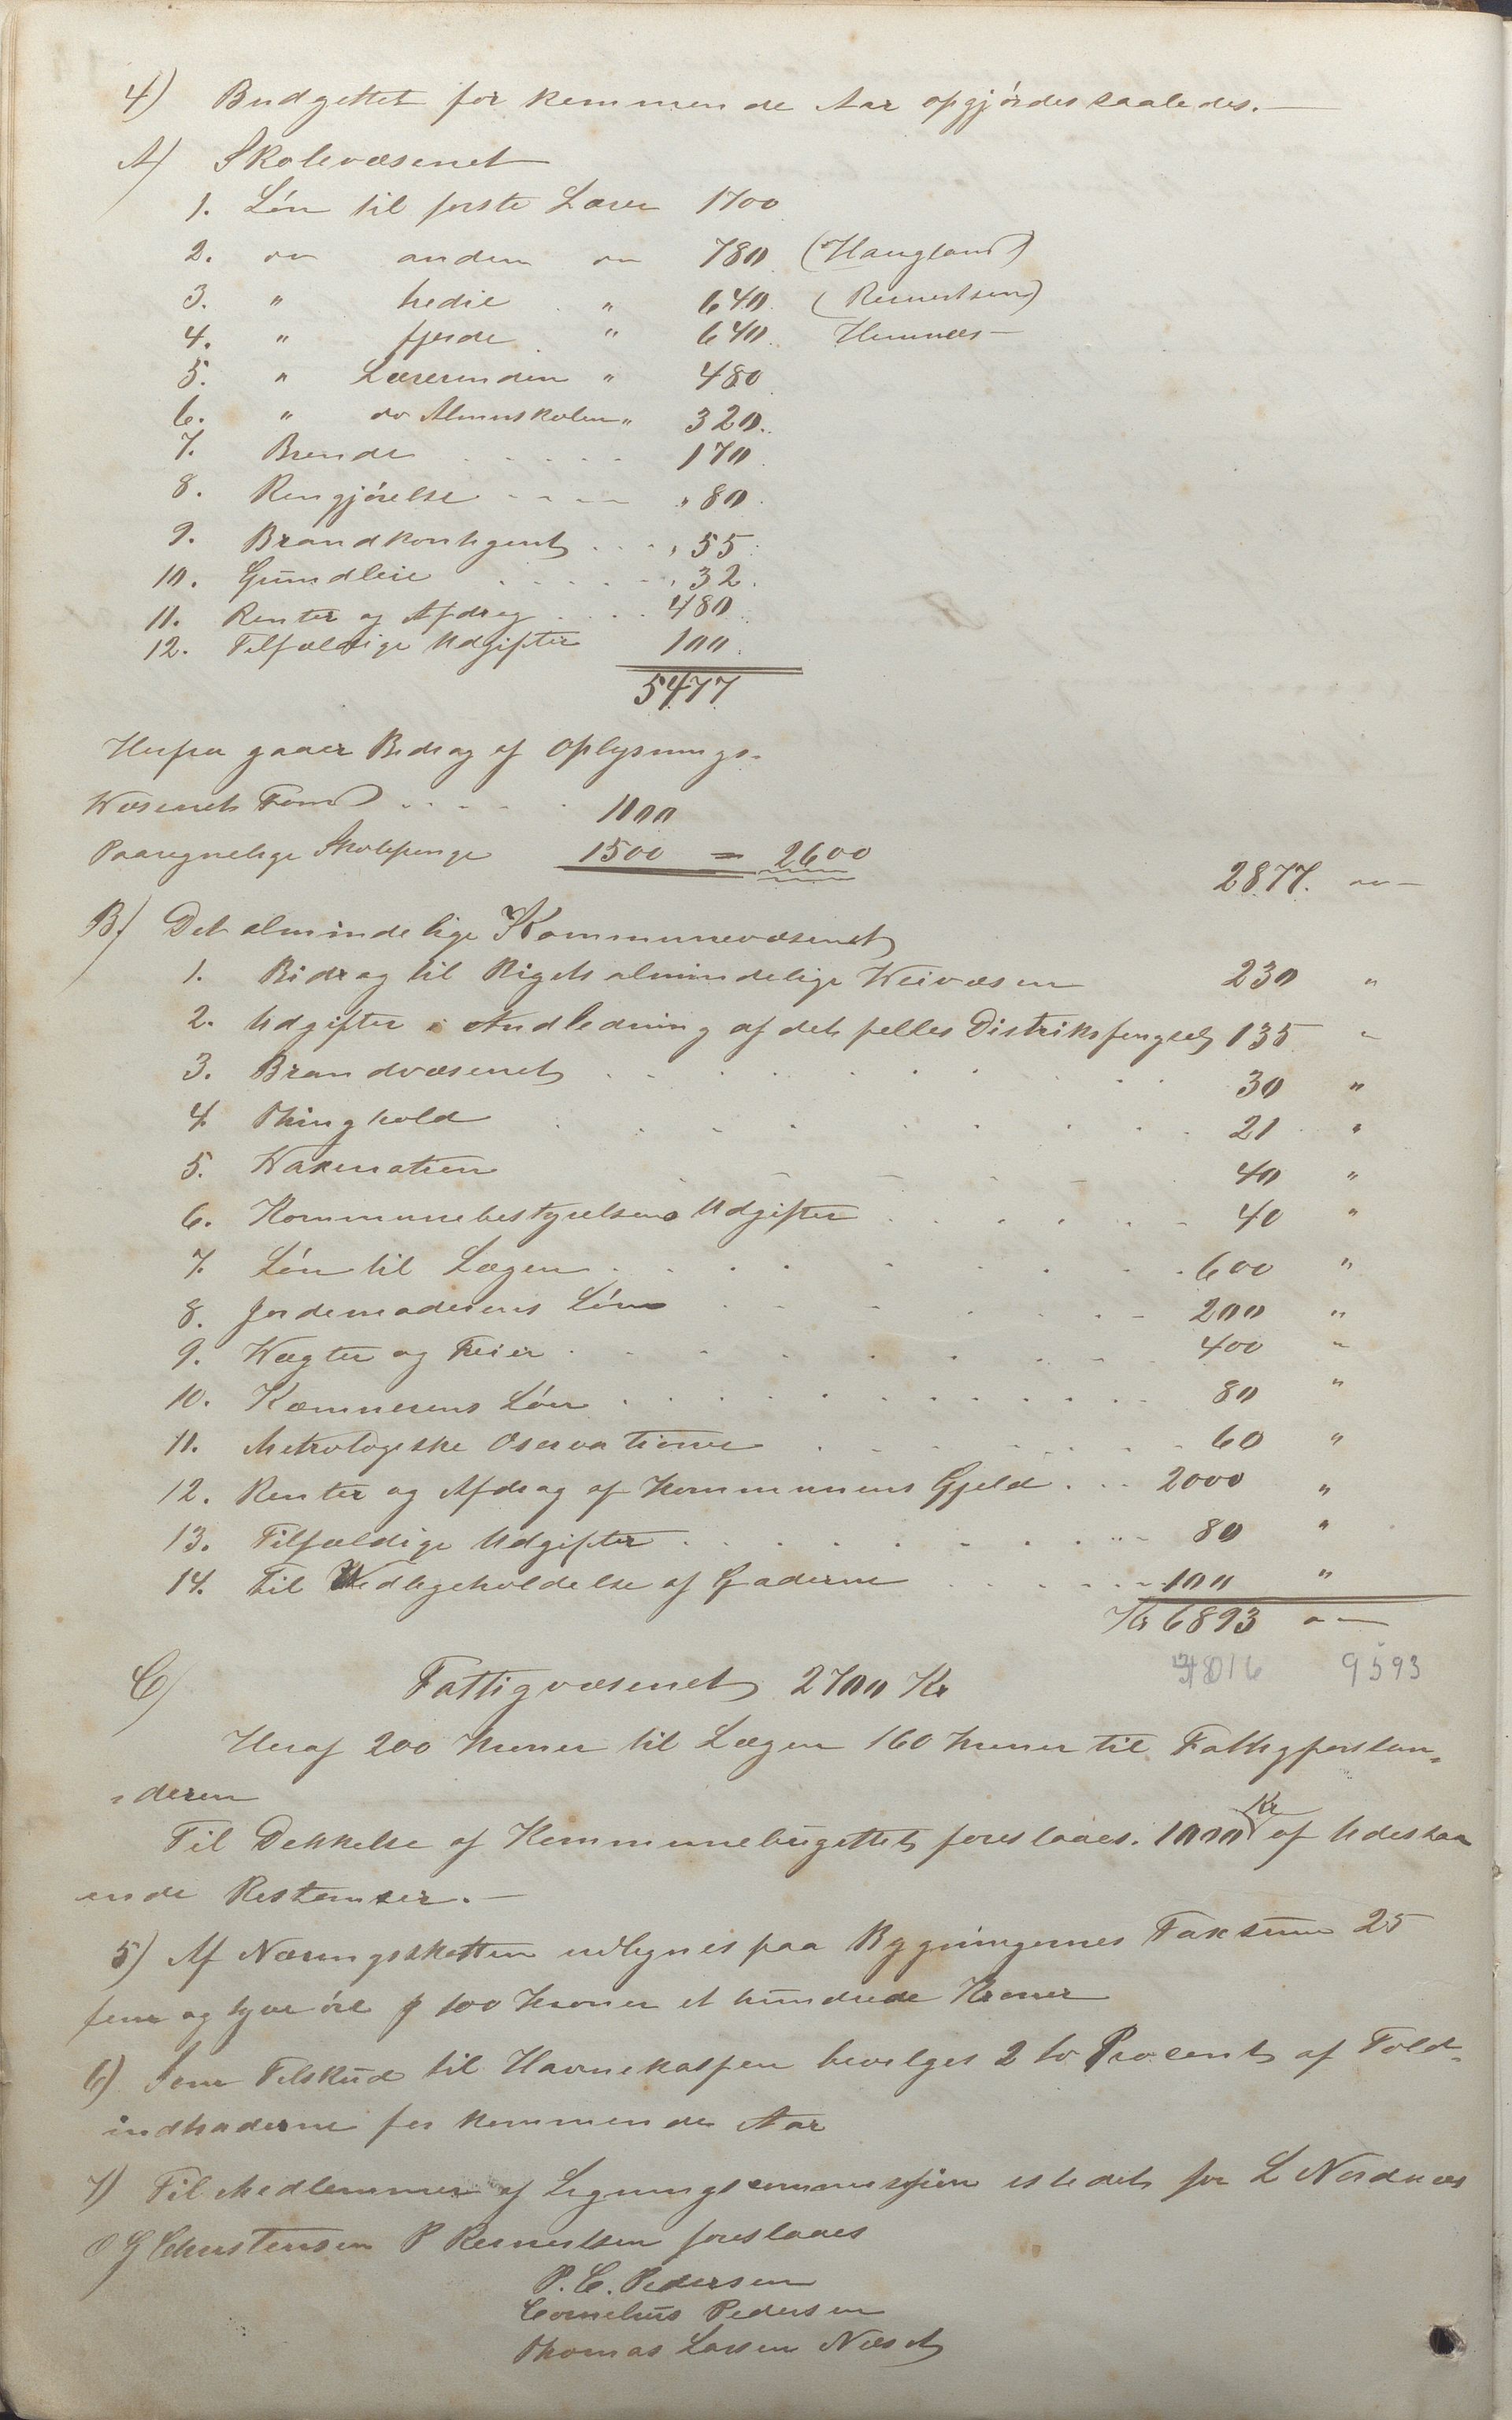 4) Budgettet for kommende Aar opgjördes saaledes.—
A) Skolevæsenet
1. Lön til første Lærer 1700
2. do anden do 780 (Haugland)
3. " tredie " 640 (Reinertsen)
4. " fjerde " 640 Hemnes —
5. " Lærerinden " 480
6. " do Almuskolen " 320.
7. Brende . . . . . 170
8. Rengjörelse - - - - " 80
9. Brandkontigent . . . , 55
10. Grundleie . . . . . , 32.
11. Renter og Afdrag . . . . 480
12. Tilfældige Udgifter 100
5477
Herfra gaaer Bidrag af Oplysnings-
Væsenets Fond . . . . . 1100
Paaregnelige Skolepenge 1500 = 2600
2877. " —
B) Det almindelige Kommunevæsenet
1. Bidrag til Rigets almindelige Veivæsen 230 "
2. Udgifter i Andledning af det felles Distriksfengsel 135 "
3. Brandvæsenet . . . . . . . . 30 "
4. Thinghold . . . . . . . . 21 "
5. Vaxination 40 "
6. Kommunebestyrelsens Udgifter . . . . . 40 "
7. Lön til Lægen . . . . . . . . 600 "
8. Jordemoderens Lön . . . . . . 200 "
9. Vægter og Feier . . . . . . . 400 "
10. Kæmnerens Lön . . . . . . . . 80 "
11. Metrologiske Oservationer . . . . . . 60 "
12. Renter og Afdrag af Kommunens Gjeld . . . 2000 "
13. Tilfældige Udgifter . . . . . . . 80 "
14. Til Vedligeholdelse af Gaderne . . . . . 100 "
Kr 6893 " —
9593
C) Fattigvæsenet 2700 Kr
Heraf 200 Kroner til Lægen 160 Kroner til Fattigforstan-
- deren
Til Dekkelse af Kommunebugettet foreslaaes. 1000 Kr af Udestaa
ende Restanser. —
5) Af Næringsskatten udlignes paa Bygningernes Taksum 25
fem og tyve öre p 100 Kroner et hundrede Kroner
6) Som Tilskud til Havnekassen bevilges 2 to Procent af Told-
indtraderne for kommende Aar
7) Til Medlemmer af Ligningscommissjon istedet for L Nordnæs
O G Christensen P Reinertsen foreslaaes
P. C. Pedersen
Cornelius Pedersen
Thomas Larsen Næset